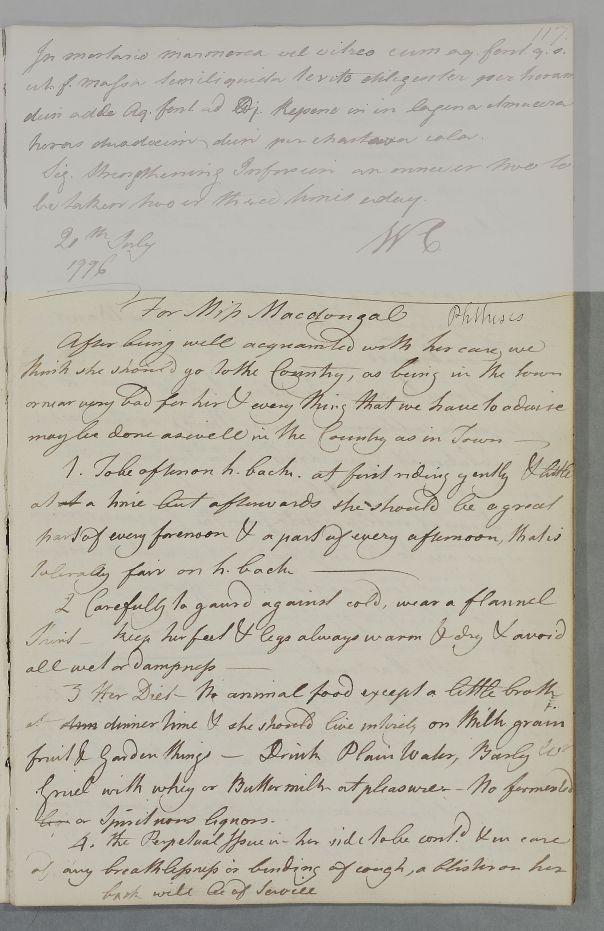 117.
In mortario marmorea vel vitreo cum aq. font q. s.
ut. f. massa semiliquida terito diligenter per horam
dein adde Aq. font ad ℔j. Repone in in lagena
horas duodecim dein per chartam cola.
Sig. Strengthening Infusion an ounce or two to
be taken two or three times a day.
20th July WC
1796
For Miss Macdougal Phthisis
After being well acquainted with her case, we
think she should go to the Country, as being in the town
or near very bad for her & every thing that we have to advise
may be done as well in the Country as in Town —
1. To be often on h. back. at first riding gently & little
at a time but afterwards she should be a great
part of every forenoon & a part of every afternoon, that is
tolerably fair on h. back —
2 Carefully to gaurd against cold, wear a flannel
Shirt – keep her feet & legs always warm & dry & avoid
all wet or dampness —
3 Her Diet – No animal food except a little broth
at dinner time & she should live intirely on Milk grain
fruit & Garden things — Drink Plain Water, Barly Wr
Gruel with whey or Butter milk at pleasure – No fermented
or Spirituous liquors.
4. the Perpetual Issue in her side to be contd. & in case
of any breathlessness or binding of cough, a blister on her
back will be of Service